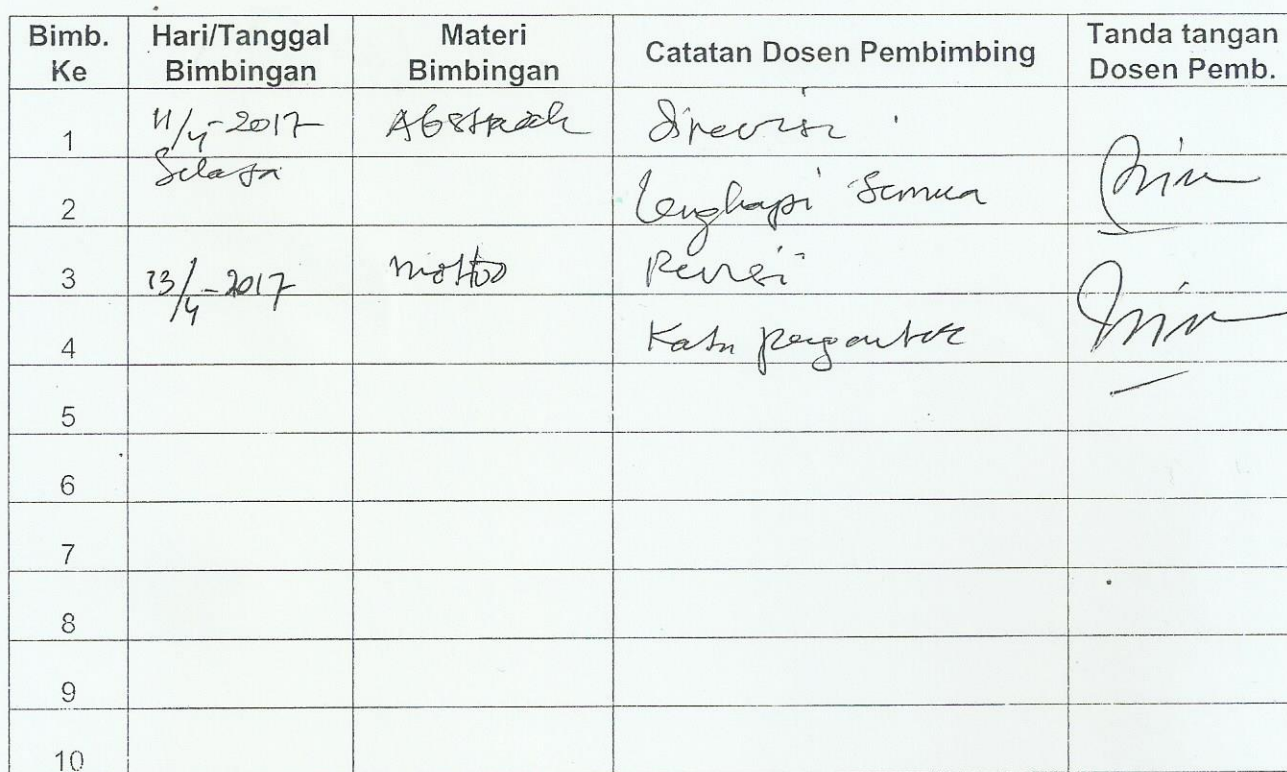 Bimb. Ke Hari/Tanggal Bimbingan Materi Bimbingan Catatan Dosen Pembimbing Tanda tangan Dosen Pemb.
1 11/4-2017 Abstrack direvisi
Selasa
2 lengkapi semua
3 13/4-2017 motto Revisi
4 Kata pengantar
5
6
7
8
9
10